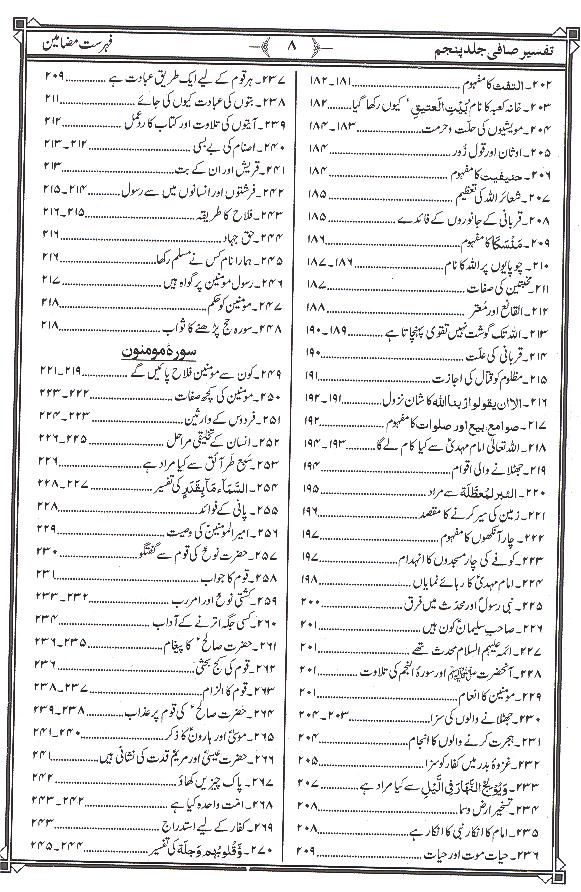 تفسیر صافی جلد پنجم
۸
فہرست مضامین
۲۰۲۔ التفث کا مفہوم ۱۸۱۔۱۸۲
۲۰۳۔ خانہ کعبہ کا نام بَیْتُ الْعَتِیقِ کیوں رکھا گیا ۱۸۲
۲۰۴۔ مویشیوں کی حلت و حرمت ۱۸۳۔۱۸۴
۲۰۵۔ اوثان اور قول زُور ۱۸۴
۲۰۶۔ حنیفیت کا مفہوم ۱۸۴
۲۰۷۔ شعائر اللہ کی تعظیم ۱۸۵
۲۰۸۔ قربانی کے جانوروں کے فائدے ۱۸۵
۲۰۹۔ مَنْسَكًا کا مفہوم ۱۸۶
۲۱۰۔ چوپایوں پر اللہ کا نام ۱۸۶۔۱۸۷
۲۱۱۔ مخبتین کی صفات ۱۸۷
۲۱۲۔ القانع اور مُعتر ۱۸۸
۲۱۳۔ اللہ تک گوشت نہیں تقویٰ پہنچاتا ہے ۱۸۹۔۱۹۰
۲۱۴۔ قربانی کی علت ۱۹۰
۲۱۵۔ مظلوم کو قتال کی اجازت ۱۹۱
۲۱۶۔ الا ان یقولوا ربنا اللہ کا شان نزول ۱۹۱۔۱۹۲
۲۱۷۔ صوامع بیع اور صلوات کا مفہوم ۱۹۲
۲۱۸۔ اللہ تعالیٰ امام مہدیؑ سے کیا کام لے گا ۱۹۳۔۱۹۴
۲۱۹۔ جھٹلانے والی اقوام ۱۹۴
۲۲۰۔ البئر لمعطلة سے مراد ۱۹۵
۲۲۱۔ زمین کی سیر کرنے کا مقصد ۱۹۶
۲۲۲۔ چار آنکھوں کا مفہوم ۱۹۷
۲۲۳۔ کوفے کی چار مسجدوں کا انہدام ۱۹۷
۲۲۴۔ امام مہدیؑ کارہائے نمایاں ۱۹۸
۲۲۵۔ نبی رسولؐ اور محدث میں فرق ۲۰۰
۲۲۶۔ صاحب سلیمانؑ کون ہیں ۲۰۱
۲۲۷۔ ائمہ علیہم السلام محدث تھے ۲۰۱
۲۲۸۔ آنحضرت صلی اللہ علیہ وسلم اور سورۂ النجم کی تلاوت ۲۰۱
۲۲۹۔ مومنین کا انعام ۲۰۱
۲۳۰۔ جھٹلانے والوں کی سزا ۲۰۳۔۲۰۴
۲۳۱۔ ہجرت کرنے والوں کا انجام ۲۰۴
۲۳۲۔ غزوۂ بدر میں کفار کو سزا ۲۰۵
۲۳۳۔ وَيُولِجُ النَّهَارَ فِي الَّيْلِ سے کیا مراد ہے ۲۰۷
۲۳۴۔ تسخیر ارض و سما ۲۰۸
۲۳۵۔ امام کا انکار نبی کا انکار ہے ۲۰۸
۲۳۶۔ حیات موت اور حیات ۲۰۹
۲۳۷۔ ہر قوم کے لیے ایک طریق عبادت ہے ۲۰۹
۲۳۸۔ بتوں کی عبادت کیوں کی جائے ۲۱۱
۲۳۹۔ آیتوں کی تلاوت اور کفار کا ردعمل ۲۱۲
۲۴۰۔ اصنام کی بے بسی ۲۱۲۔۲۱۳
۲۴۱۔ قریش اور ان کے بت ۲۱۳
۲۴۲۔ فرشتوں اور انسانوں میں سے رسول ۲۱۴۔۲۱۵
۲۴۳۔ فلاح کا طریقہ ۲۱۵۔۲۱۶
۲۴۴۔ حق جہاد ۲۱۶
۲۴۵۔ ہمارا نام کس نے مسلم رکھا ۲۱۶
۲۴۶۔ رسول مومنین پر گواہ ہیں ۲۱۷
۲۴۷۔ مومنین کو حکم ۲۱۸
۲۴۸۔ سورہ حج پڑھنے کا ثواب ۲۱۸
سورۂ مومنون
۲۴۹۔ کون سے مومنین فلاح پائیں گے ۲۱۹۔۲۲۱
۲۵۰۔ مومنین کی کچھ صفات ۲۲۲۔۲۲۳
۲۵۱۔ فردوس کے وارثین ۲۲۳۔۲۲۴
۲۵۲۔ انسان کے تخلیقی مراحل ۲۲۵۔۲۲۶
۲۵۳۔ سبع طرآئق سے کیا مراد ہے ۲۲۶
۲۵۴۔ السَّمَآءِ مَآءً بِقَدَرٍ کی تفسیر ۲۲۷۔۲۲۸
۲۵۵۔ پانی کے فوائد ۲۲۸
۲۵۶۔ امیر المومنینؑ کی وصیت ۲۲۹
۲۵۷۔ حضرت نوحؑ کی قوم سے گفتگو ۲۳۰
۲۵۸۔ قوم کا جواب ۲۳۱
۲۵۹۔ کشتی نوحؑ اور امر رب ۲۳۲۔۲۳۳
۲۶۰۔ کسی جگہ اترنے کے آداب ۲۳۴
۲۶۱۔ حضرت صالحؑ کا پیغام ۲۳۵۔۲۳۶
۲۶۲۔ قوم کی کج بحثی ۲۳۶
۲۶۳۔ قوم کا الزام ۲۳۷۔۲۳۸
۲۶۴۔ حضرت صالحؑ کی قوم پر عذاب ۲۳۸۔۲۳۹
۲۶۵۔ موسیٰؑ اور ہارونؑ کا ذکر ۲۴۰۔۲۴۱
۲۶۶۔ حضرت عیسیٰؑ اور مریمؑ قدرت کی نشانی ہیں ۲۴۱
۲۶۷۔ پاک چیزیں کھاؤ ۲۴۲
۲۶۸۔ امت واحدہ کیا ہے ۲۴۲۔۲۴۳
۲۶۹۔ کفار کے لیے استدراج ۲۴۳
۲۷۰۔ وَقُلُوبُهُم وَجِلَةٌ کی تفسیر ۲۴۴۔۲۴۵